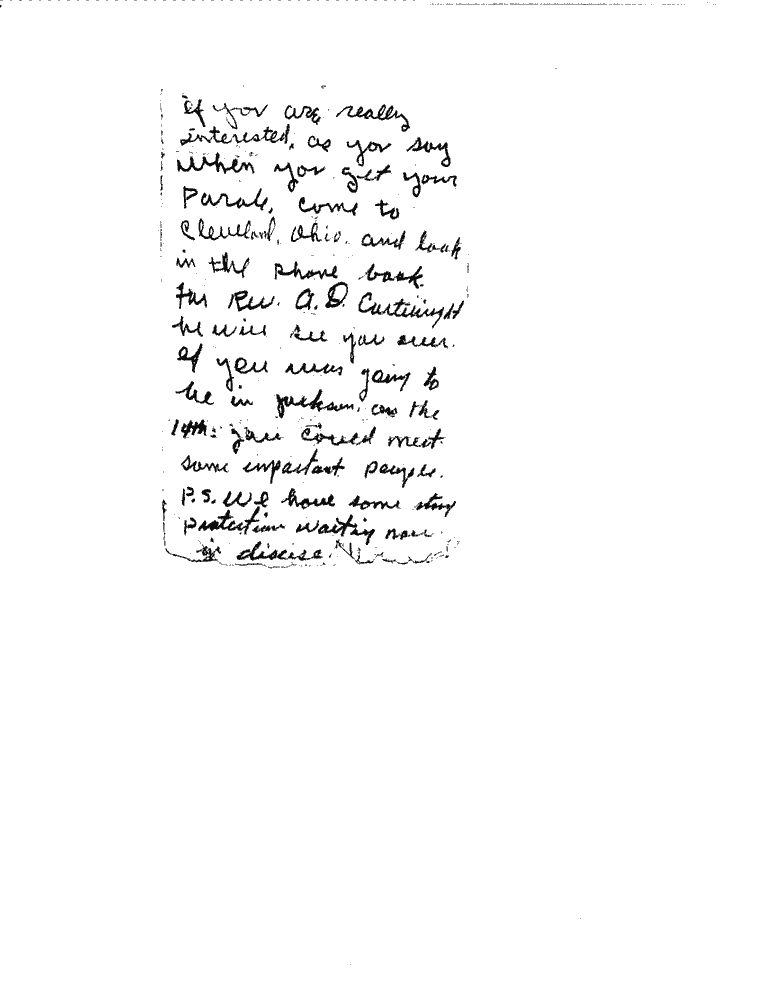 if you are really
interested, as you say
When you get your
Parole, come to
Cleveland, Ohio. and look
in the phone book
for Rev. A.D. Cartwright
he will see you over.
if you was going to
be in Jackson, on the
14th: you could meet
some important people.
P.S. We have some
protection waiting now
in